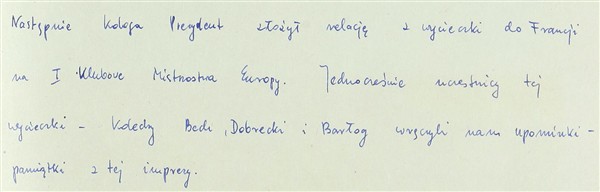 Następnie kolega Prezydent złożył relację z wycieczki do Francji
na I Klubowe Mistrzostwa Europy. Jednocześnie uczestnicy tej
wycieczki - Koledzy Bedi, Dobrecki i Bartog wręczyli nam upominki -
pamiątki z tej imprezy.